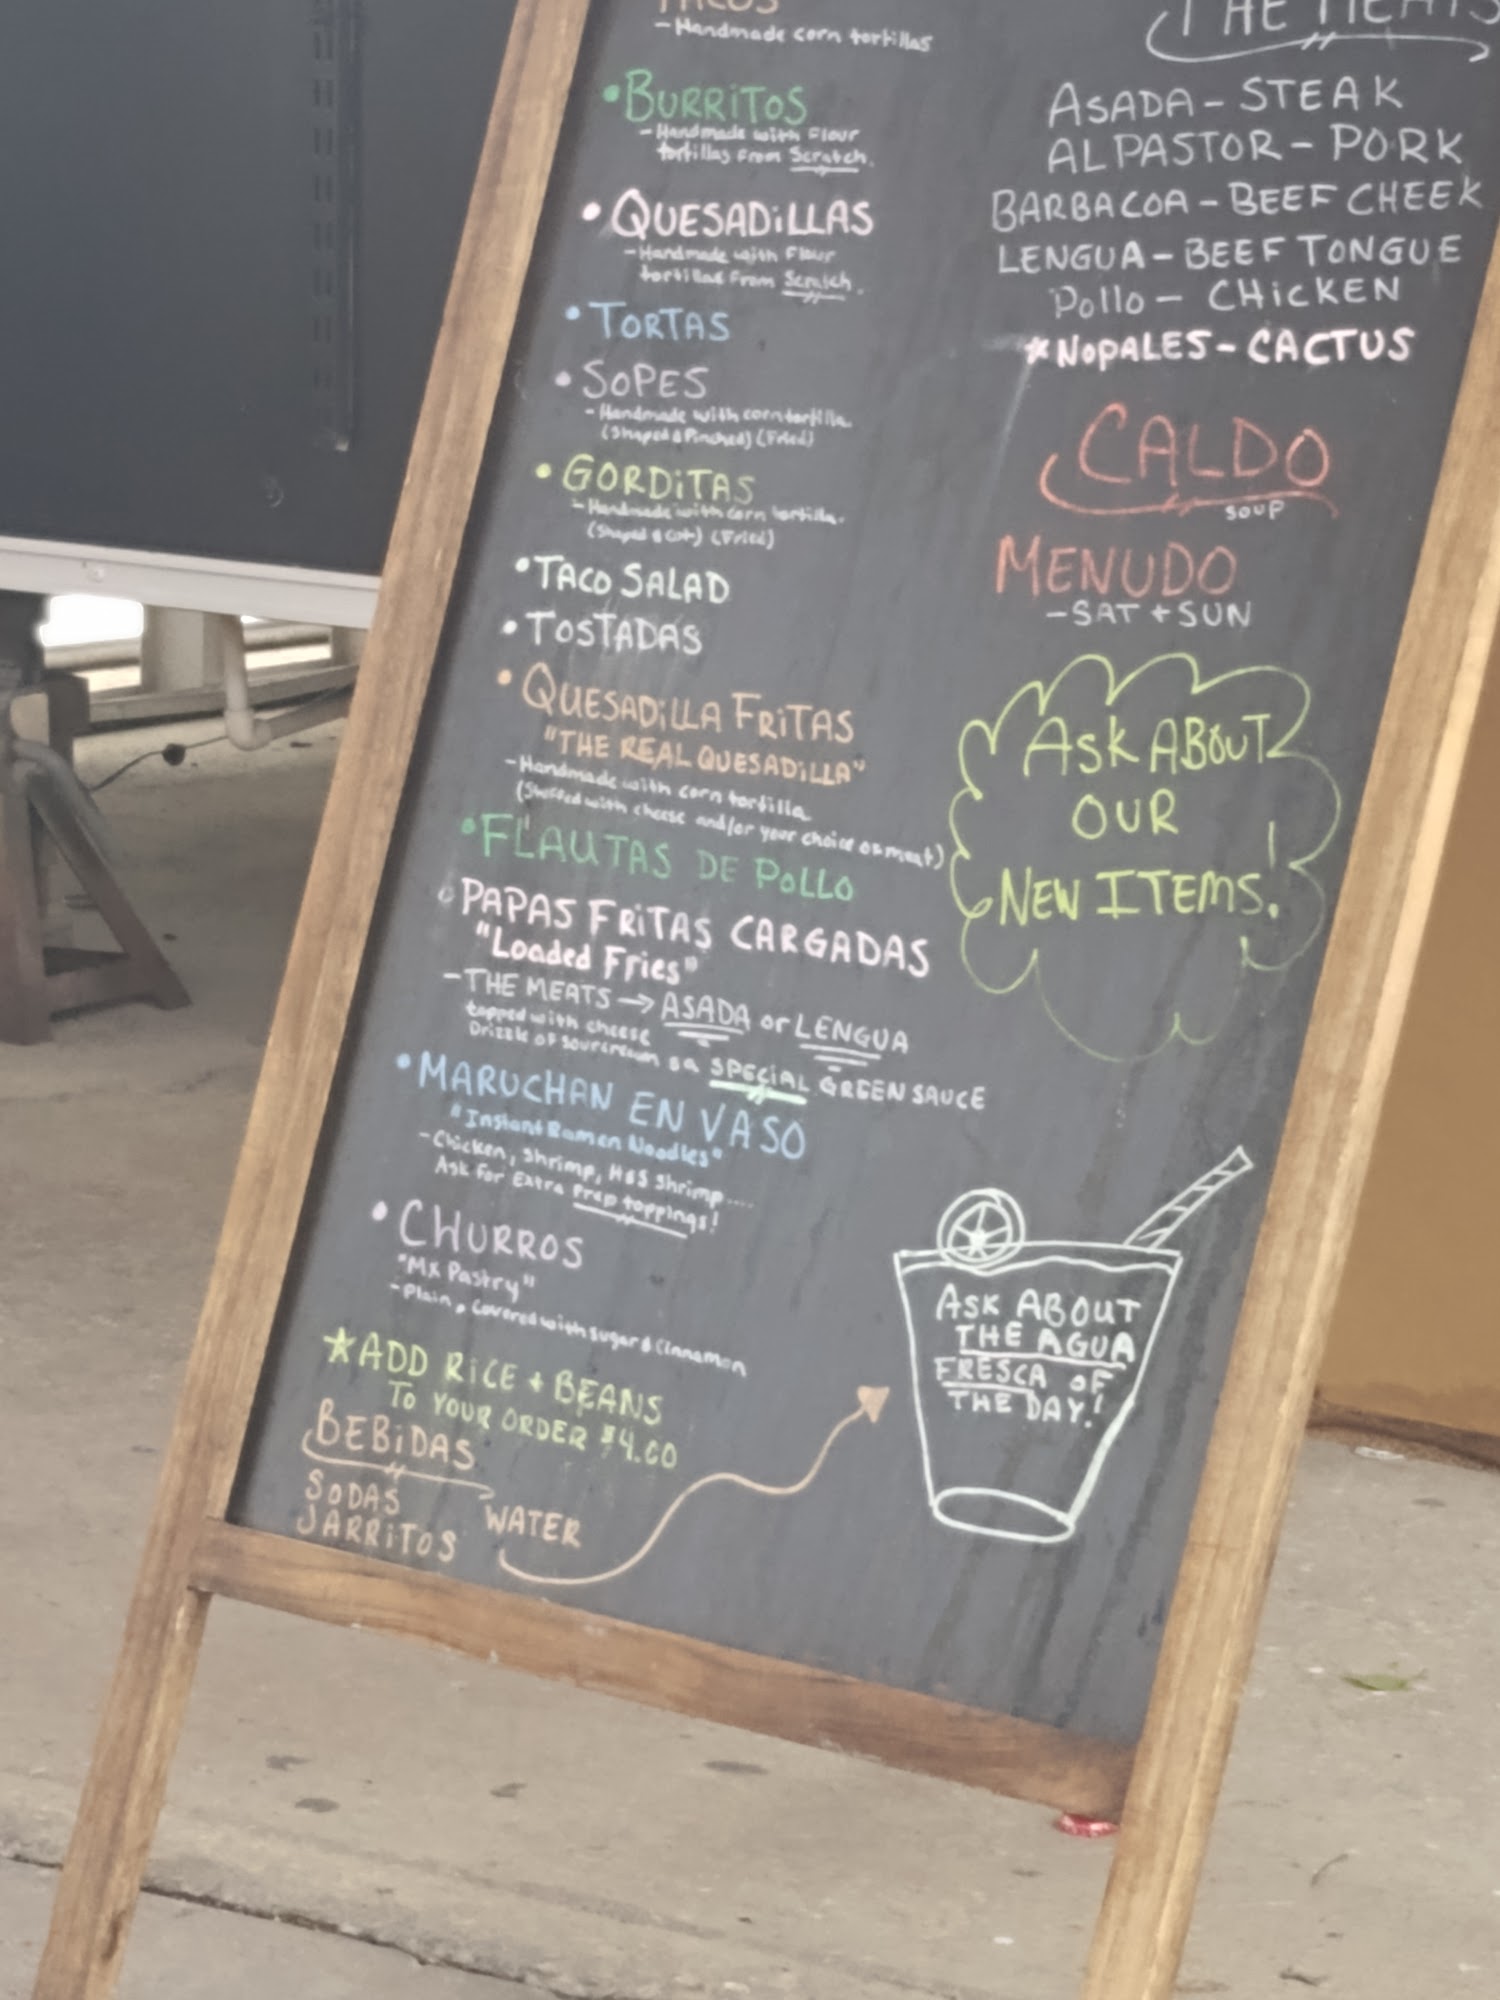 TACOS
- Handmade corn tortillas
• BURRITOS
- Handmade with Flour
tortillas From Scratch.
• QUESADiLLAS
- Handmade with Flour
tortillas From Scratch.
• TORTAS
• SOPES
- Handmade with corn tortilla.
(Shaped & Pinched) (Fried)
• GORDiTAS
- Handmade with corn tortilla.
(Shaped & Cut) (Fried)
• TACO SALAD
• TOSTADAS
• QUESADiLLA FRiTAS
"THE REAL QUESADiLLA"
- Handmade with corn tortilla
(Stuffed with cheese and/or your choice of meat)
• FLAUTAS DE POLLO
• PAPAS FRiTAS CARGADAS
"Loaded Fries"
- THE MEATS → ASADA or LENGUA
topped with cheese
Drizzle of sourcream SPECiAL GREEN SAUCE
• MARUCHAN EN VASO
"Instant Ramen Noodles"
- Chicken, Shrimp, Shrimp....
Ask For Extra Prep toppings!
• CHURROS
"Mx Pastry"
- Plain, Covered with sugar & Cinnamon
★ ADD RiCE + BEANS
TO YOUR ORDER $4.00
BEBiDAS
SODAS
JARRiTOS
WATER
THE MEATS
ASADA - STEAK
AL PASTOR - PORK
BARBACOA - BEEF CHEEK
LENGUA - BEEF TONGUE
Pollo - CHiCKEN
★ NOPALES - CACTUS
CALDO
SOUP
MENUDO
- SAT + SUN
ASK ABOUT
OUR
NEW ITEMS!
ASK ABOUT
THE AGUA
FRESCA OF
THE DAY!